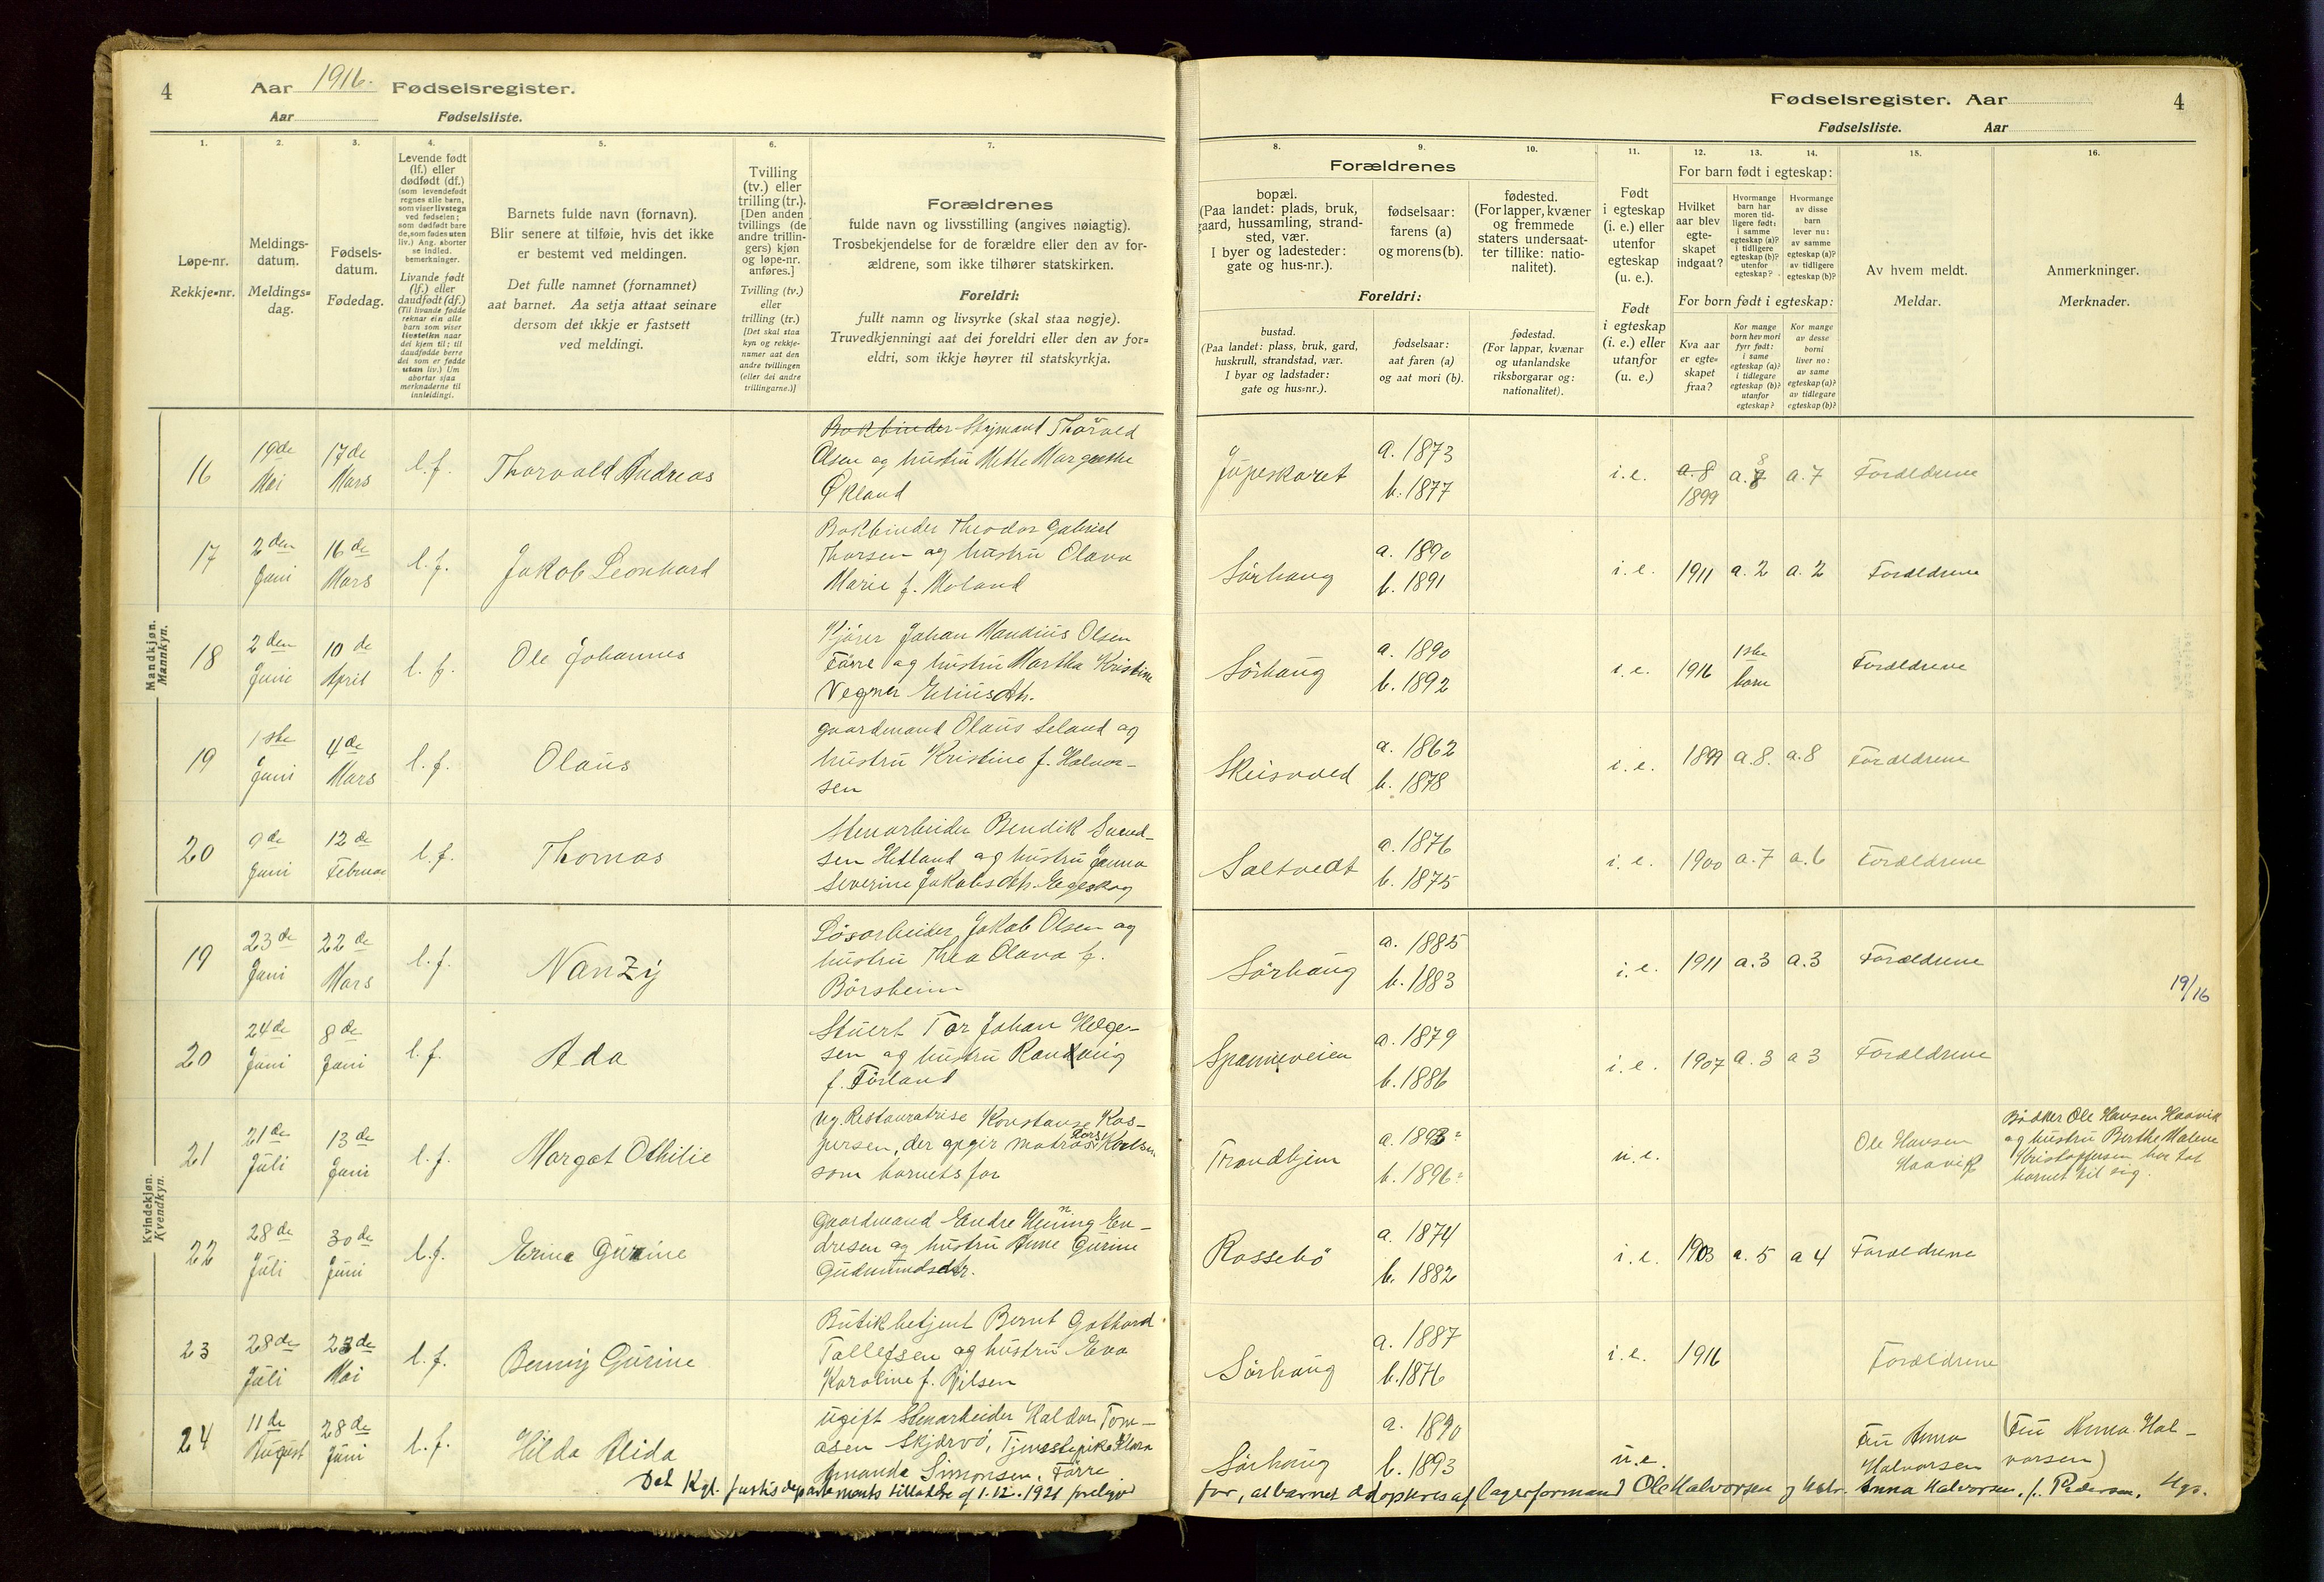 4 Aar 1916. Fødselsregister.
Aar Fødselsliste.
Fødselsregister. Aar 4
Fødselsliste. Aar
1. 2. 3. 4. 5. 6. 7.
Løpe-nr.
Rekkje-nr.
Meldings-
datum.
Meldings-
dag.
Fødsels-
datum.
Fødedag.
Levende født
(lf.) eller
dødfødt (df.)
(som levendefødt
regnes alle barn,
som viser livstegn
ved fødselen;
som dødfødt bare
de, som fødes uten
liv.) Ang. aborter
se indled.
bemerkninger.
Livande født
(lf.) eller
daudfødt (df.)
(Til livande fødde
reknar ein alle
barn som viser
livsteikn naar
dei kjem til; til
daudfødde berre
dei som er fødde
utan liv.) Um
abortar sjaa
merknaderne til
innleidingi.
Barnets fulde navn (fornavn).
Blir senere at tilføie, hvis det ikke
er bestemt ved meldingen.
Det fulle namnet (fornamnet)
aat barnet. Aa setja attaat seinare
dersom det ikkje er fastsett
ved meldingi.
Tvilling
(tv.) eller
trilling (tr.).
[Den anden
tvillings (de
andre trillin-
gers) kjøn
og løpe-nr.
anføres.]
Tvilling (tv.)
eller
trilling (tr.)
[Det skal staa
kyn og rekkje-
numer aat den
andre tvillingen
(eller dei andre
trillingarne.)]
Forældrenes
fulde navn og livsstilling (angives nøiagtig).
Trosbekjendelse for de forældre eller den av for-
ældrene, som ikke tilhører statskirken.
Foreldri:
fullt namn og livsyrke (skal staa nøgje).
Truvedkjenningi aat dei foreldri eller den av for-
eldri, som ikkje høyrer til statskyrkja.
8. 9. 10. 11. 12. 13. 14. 15. 16.
Forældrenes
bopæl.
(Paa landet: plads, bruk,
gaard, hussamling, strand-
sted, vær.
I byer og ladesteder:
gate og hus-nr.).
fødselsaar:
farens (a)
og morens (b).
fødested.
(For lapper, kvæner
og fremmede
staters undersaat-
ter tillike: natio-
nalitet).
Foreldri:
bustad.
(Paa landet: plass, bruk, gard,
huskrull, strandstad, vær.
I byar og ladstader:
gate og hus-nr.).
fødselsaar:
aat faren (a)
og aat mori (b).
fødestad.
(For lappar, kvænar
og utanlandske
riksborgarar og:
nationalitet).
Født
i egteskap
(i. e.) eller
utenfor
egteskap
(u. e.).
Født
i egteskap
(i. e.) eller
utanfor
(u. e.)
For barn født i egteskap:
Hvilket
aar blev
egte-
skapet
indgaat?
Hvormange
barn har
moren tid-
ligere født:
i samme
egteskap (a)?
i tidligere
egteskap (b)?
utenfor
egteskap?
Hvormange
av disse
barn
lever nu:
av samme
egteskap (a)?
av tidligere
egteskap (b)?
For born født i egteskap:
Kva aar
er egte-
skapet
fraa?
Kor mange
born hev mori
fyrr født:
i same
egteskap (a)?
i tidlegare
egteskap (b)?
utanfor
egteskap?
Kor mange
av desse
borni
liver no:
av same
egteskap (a)?
av tidlegare
egteskap (b)?
Av hvem meldt.
Meldar.
Anmerkninger.
Merknader.
Mandkjøn.
Mannkyn.
16 19de Mai 17de Mars l.f. Thorvald Andreas
Bokbinder Styrmand Thorvald
Olsen og hustru Mette Margrethe
Økland
Jupeskaret a. 1873 b. 1877 i.e. a. 8 1899 a. 8 a. 7 Forældrene
17 2den Juni 16de Mars l.f. Jakob Leonhard
Bokbinder Theodor Gabriel
Thorsen og hustru Olava
Marie f. Moland
Sørhaug a. 1890 b. 1891 i.e. 1911 a. 2 a. 2 Forældrene
18 2den Juni 10de April l.f. Ole Johannes
Kjører Johan Mandius Olsen
Førre og hustru Martha Kristine
Vegner Eliusdtr.
Sørhaug a. 1890 b. 1892 i.e. 1916 1ste barn Forældrene
19 1ste Juni 4de Mars l.f. Olaus
gaardmand Olaus Seland og
hustru Kristine f. Halvor-
sen
Skeisvold a. 1862 b. 1878 i.e. 1899 a. 8. a. 8 Forældrene
20 9de Juni 12de Februar l.f. Thomas
Stenarbeider Bendik Svend-
sen Hetland og hustru Janna
Severine Jakobsdtr. Egeskog
Saltvedt a. 1876 b. 1875 i.e. 1900 a. 7 a. 6 Forældrene
Kvindekjøn.
Kvendkyn.
19 23de Juni 22de Mars l.f. Nanzy
Løsarbeider Jakob Olsen og
hustru Thea Olava f.
Børsheim
Sørhaug a. 1885 b. 1883 i.e. 1911 a. 3 a. 3 Forældrene
19/16
20 24de Juni 8de Juni l.f. Ada
Stuert Tor Johan Helge-
sen og hustru Randig
f. Førland
Spanneveien a. 1879 b. 1886 i.e. 1907 a. 3 a 3 Forældrene
21 21de Juli 13de Juni l.f. Margot Othilie
Ug. Restauratrise Konstanse Kas-
persen, der opgir matros Karlsen
som barnets far
Trondhjem a. 1893 b. 1896 u.e. Ole Hansen Haavik
Bødker Ole Hansen Haavik
og hustru Berthe Malene
Kristoffersen har tat
barnet til sig.
22 28de Juli 30de Juni l.f. Erine Gurine
Gaardmand Endre Henning En-
dresen og hustru Anne Gurine
Gudmundsdtr.
Rossebø a. 1874 b. 1882 i.e. 1903 a. 5 a 4 Forældrene
23 28de Juli 23de Mai l.f. Benny Gurine
Butikbetjent Bernt Gothard
Tollefsen og hustru Eva
Karoline f. Nilsen
Sørhaug a. 1887 b. 1876 i.e. 1916 Forældrene
24 11de August 28de Juni l.f. Hilda Alida
Ugift Stenarbeider Haldor Tom-
asen Skjærvø, Tjenestepike Klara
Amanda Simonsen, Førre.
Sørhaug a. 1890 b. 1893 u.e. Fru Anna Halvorsen (Fru Anna Hal-
vorsen)
Det Kgl. Justisdepartements tilladelse af 1.12.1921 foreligger
for, at barnet adopteres af lagerformand Ole Halvorsen og hustr. Anna Halvorsen, f. Pedersen, Hgs.